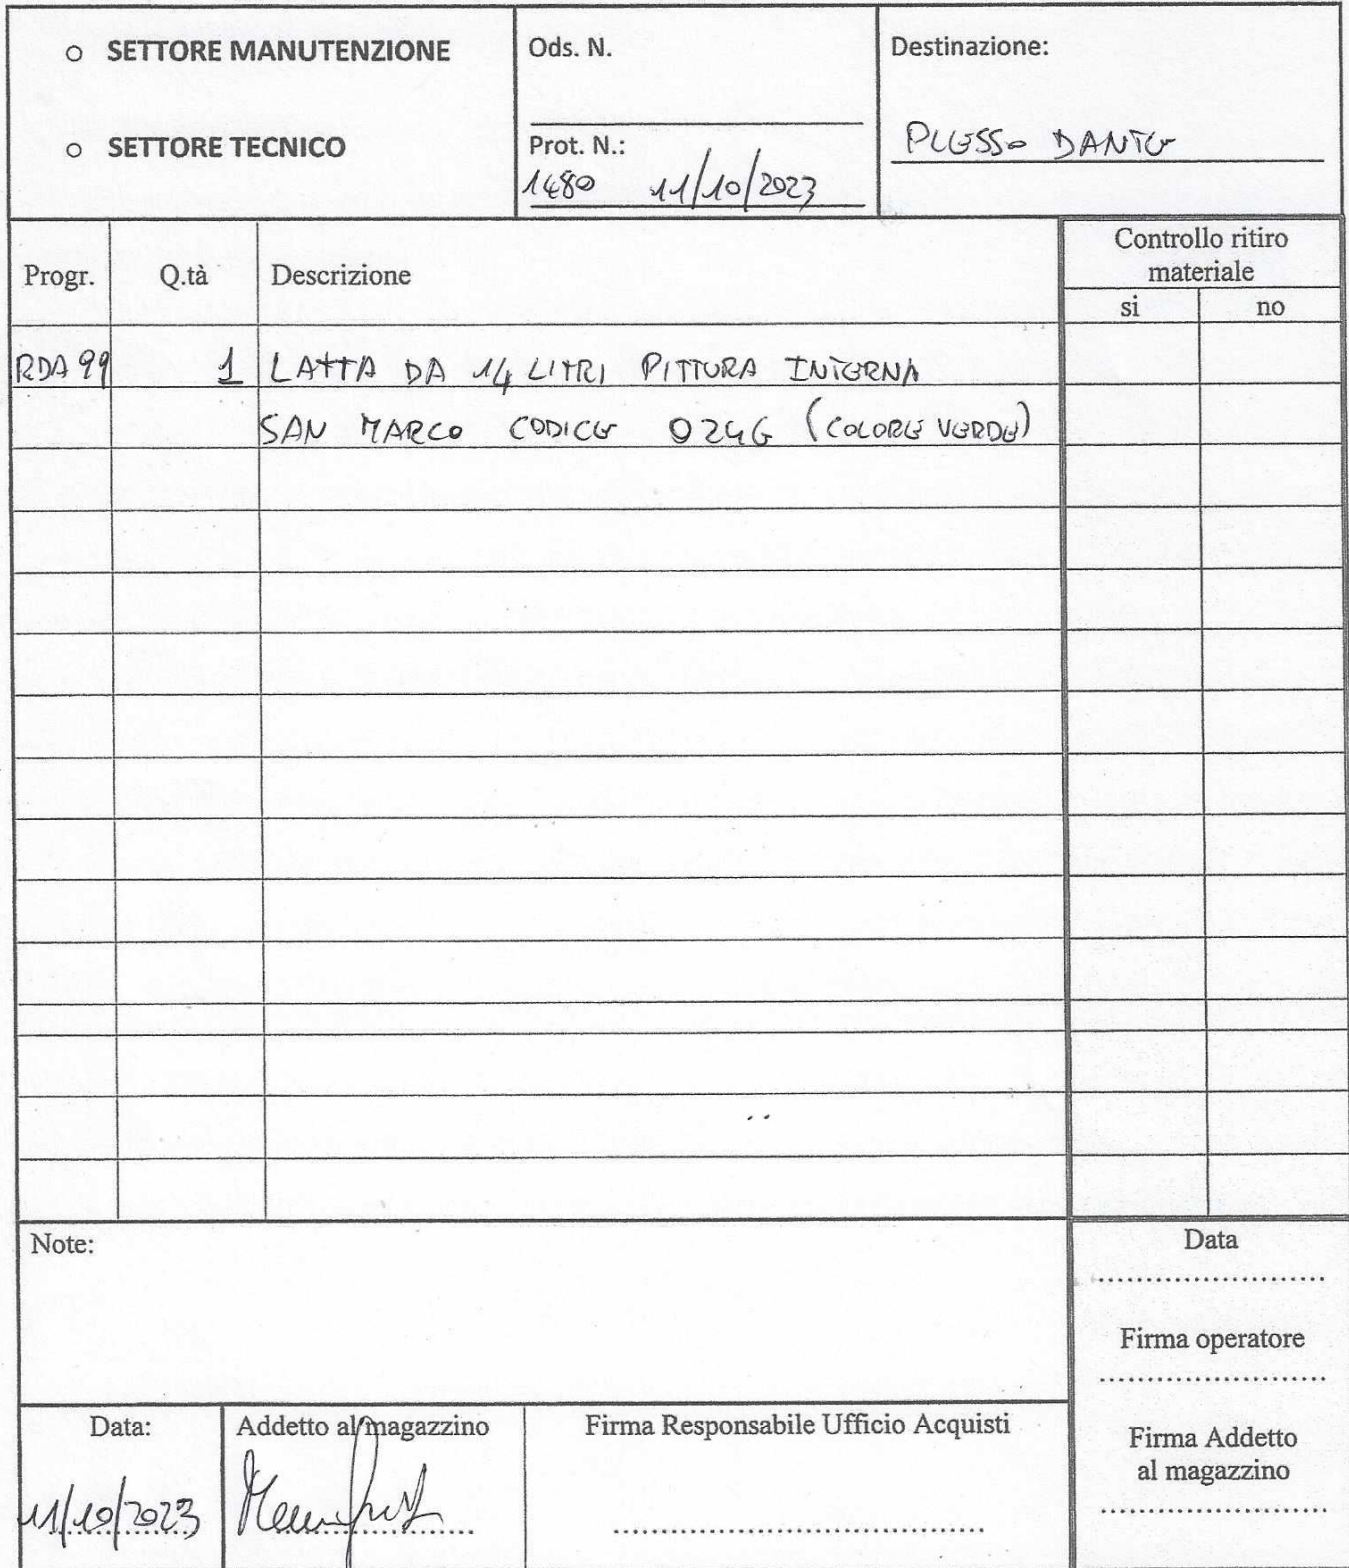 SETTORE MANUTENZIONE
SETTORE TECNICO
Ods. N.
Prot. N.:
1480 11/10/2023
Destinazione:
PLESSO DANTE
Progr.
Q.tà
Descrizione
Controllo ritiro
materiale
si
no
RDA 99 1 LATTA DA 14 LITRI PITTURA INTERNA
SAN MARCO CODICE 0246 (COLORE VERDE)
Note:
Data
Firma operatore
Firma Addetto
al magazzino
Data:
11/10/2023
Addetto al magazzino
Firma Responsabile Ufficio Acquisti